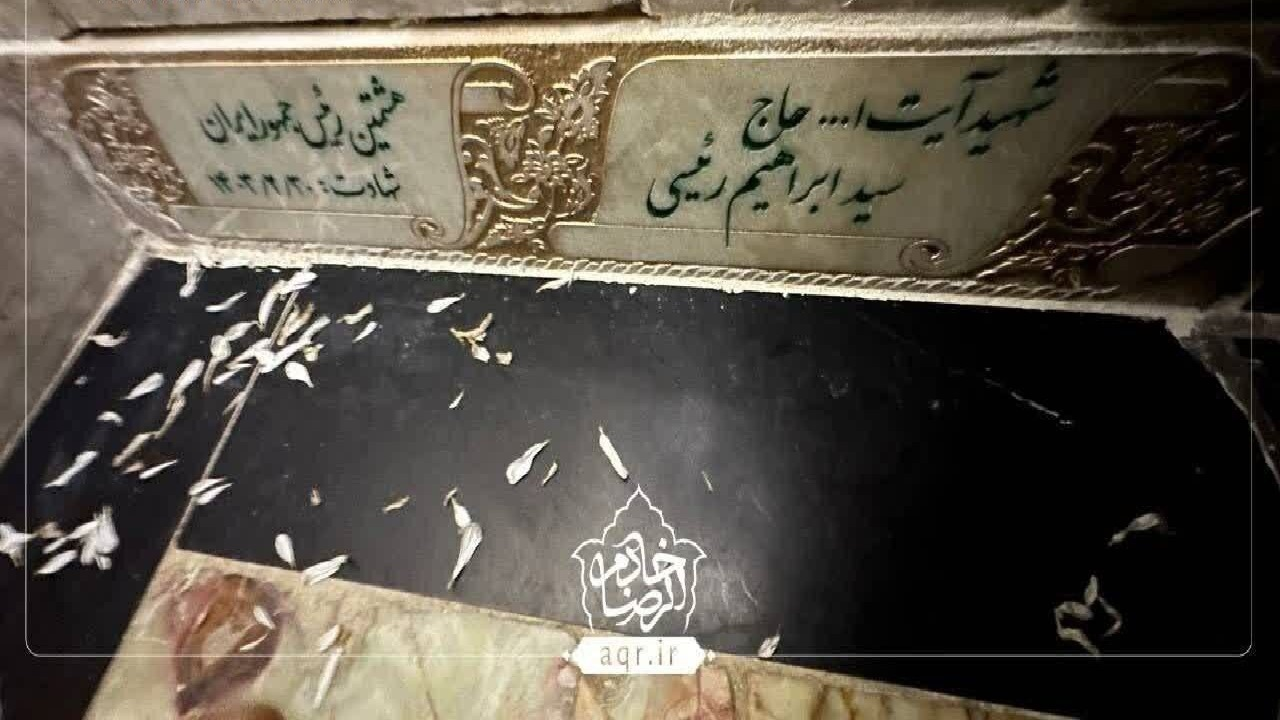 شهید آیت ا... حاج
سید ابراهیم رئیسی
هشتمین رئیس جمهور ایران
شهادت: ۱۴۰۳/۲/۳۰
خادم الرضا
aqr.ir